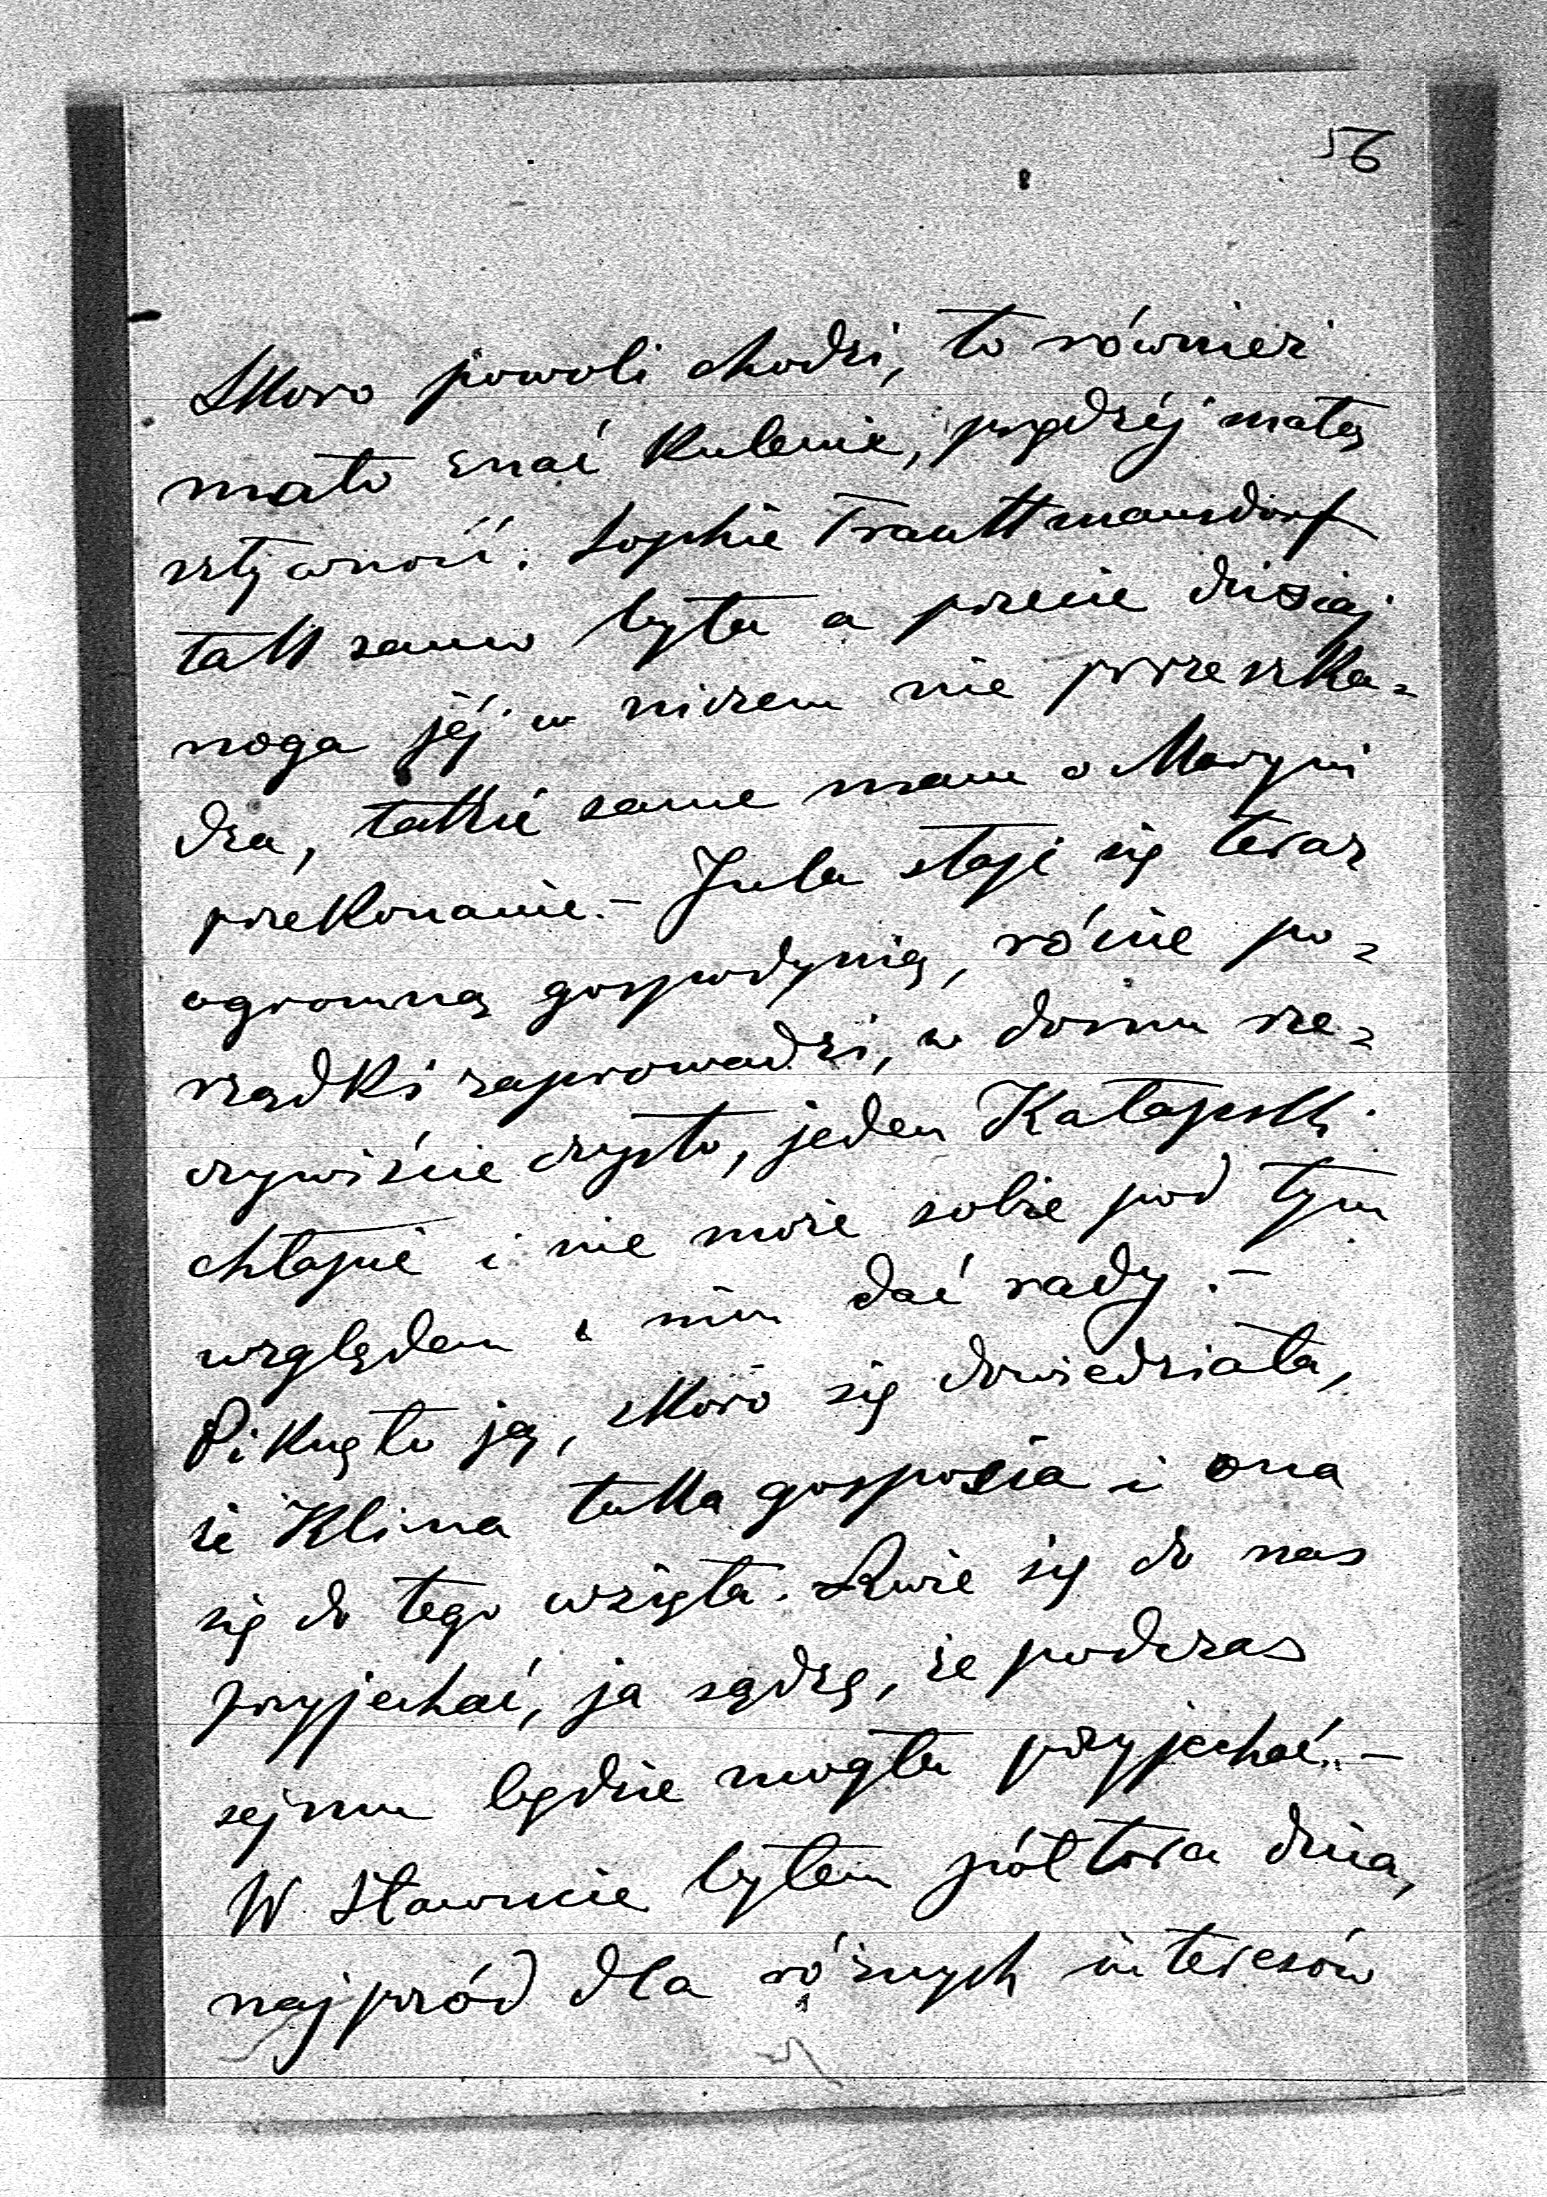 56
Skoro powoli chodzi, to również
mało znać kulenie, prędzéj małą
sztywność. Sophie Trauttmansdorf
tak samo była a przecie dzisiaj
noga jéj w niczem nie przeszka=
dza, takie same mam o Maryni
przekonanie. – Jula staje się teraz
ogromną gospodynią, różne po=
rządki zaprowadzi, w domu rze=
czywiście czysto, jeden Katapski
chłapie i nie może sobie pod tym
względem z nim dać rady. –
Piknęło ją, skoro się dowiedziała,
że Klima taka gosposia i ona
się do tego wzięła. Rwie się do nas
przyjechać, ja sądzę, że podczas
sejmu będzie mogła przyjechać. –
W Sławucie byłem półtora dnia,
najprzód dla różnych interesów